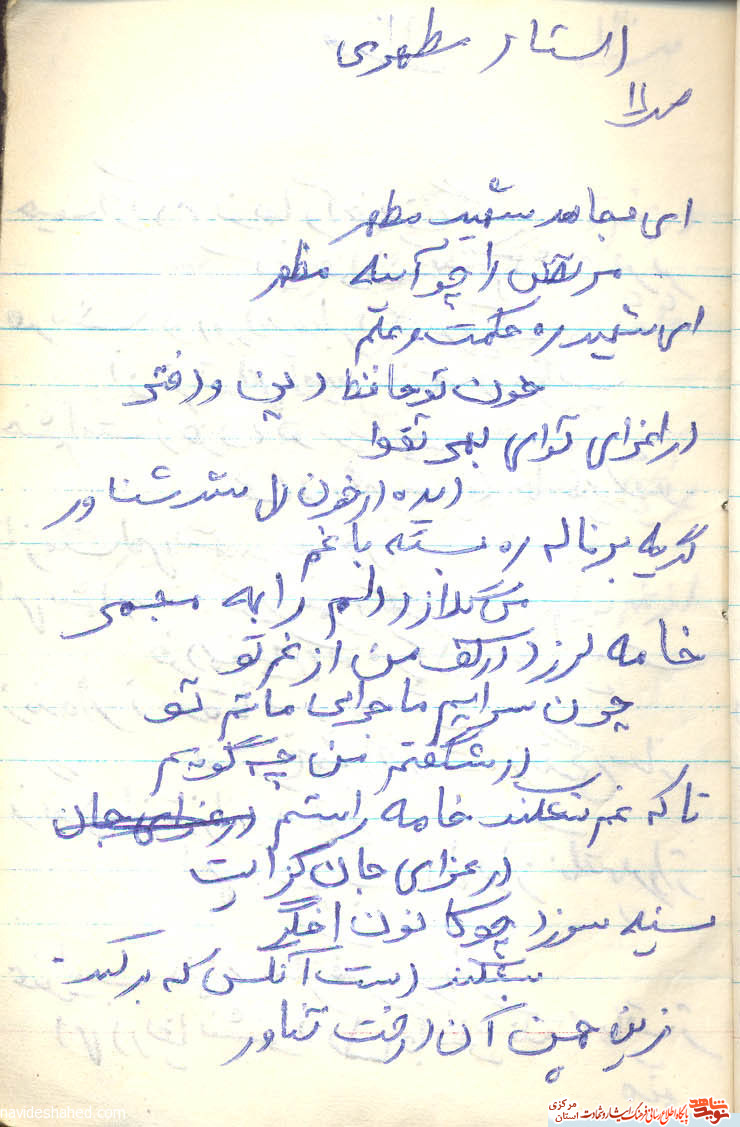 استاد مطهری
ص ۱۱
ای مجاهد شهید مطهر
مرتضی را چو آینه مظهر
ای شهید ره حکمت و علم
خون تو حافظ دین و دفتر
در اعزای تو ای بهر تقوا
دیده در خون دل شد شناور
گریه بر ناله ره بسته با غم
می گدازد دلم را به مجمر
خامه لرزد در کف من از غم تو
چون سرایم ماجرایی ماتم تو
در شگفتم من چه گویم
تا که غم نشکند خامه راستم در عزای جان
در عزای جان گزایت
سینه سوزد چو کانون اخگر
بشکند دست آنکس که برکند
زین چمن آن درخت تناور
navideshahed.com
نوید شاهد
پایگاه اطلاع رسانی فرهنگ ایثار و شهادت
استان مرکزی